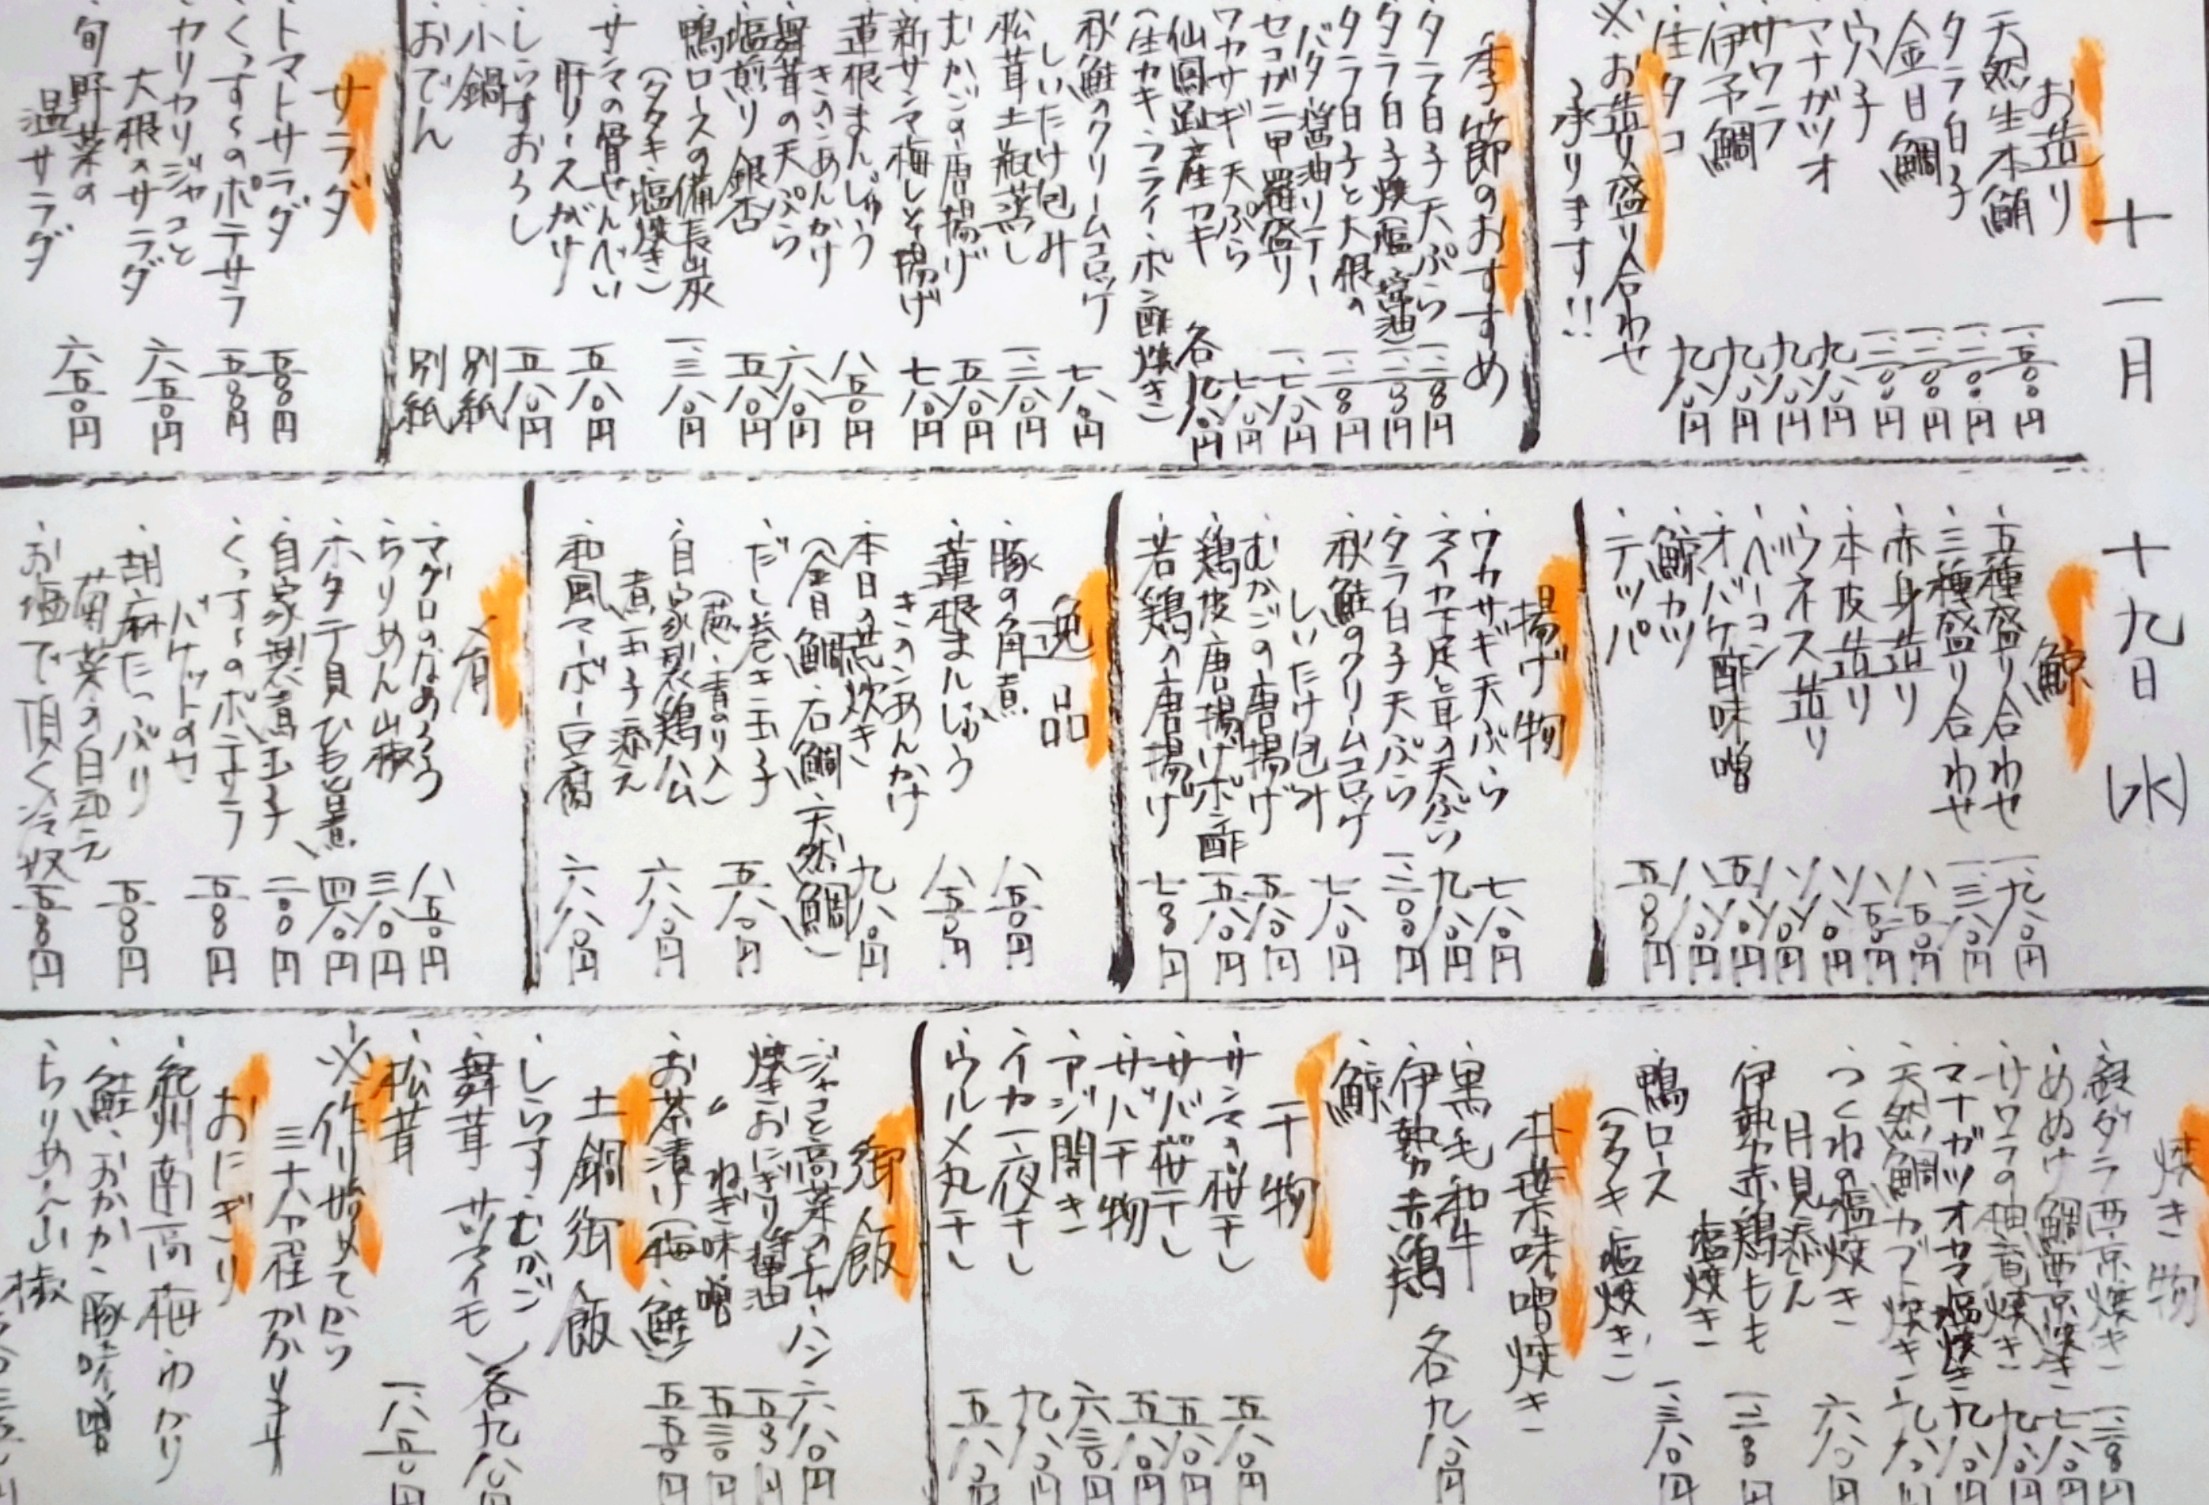 十一月 十九日(水)
お造り
・天然生本鮪 一、五〇〇円
・タラ白子 一、二〇〇円
・金目鯛 一、二〇〇円
・穴子 一、二〇〇円
・マナガツオ 九八〇円
・サワラ 九八〇円
・伊予鯛 九八〇円
・生タコ 九八〇円
※お造り盛り合わせ
承ります!!
季節のおすすめ
・タラ白子天ぷら 一、二〇〇円
・タラ白子焼(塩・醤油)
・タラ白子と大根の
バター醤油ソテー 一、二〇〇円
・セコガニ甲羅盛り
・ワカサギ天ぷら 七八〇円
・仙鳳趾産カキ 各九八〇円
(生カキ・フライ・ポン酢・焼き)
・秋鮭のクリームコロッケ
しいたけ包み 七八〇円
・松茸土瓶蒸し
・むかごの唐揚げ 五八〇円
・新サンマ梅しそ揚げ 七八〇円
・蓮根まんじゅう
きのこあんかけ 八五〇円
・舞茸の天ぷら 六八〇円
・塩煎り銀杏 五八〇円
・鴨ロースの備長炭
(タタキ・塩焼き) 一、三八〇円
・サンマの骨せんべい
肝ソースがけ 五八〇円
・しらすおろし 五八〇円
・小鍋 別紙
・おでん 別紙
サラダ
・トマトサラダ 五〇〇円
・くっすーのポテサラ 五〇〇円
・カリカリジャコと
大根のサラダ 六五〇円
・旬野菜の
温サラダ 六五〇円
鯨
・五種盛り合わせ 一、九八〇円
・三種盛り合わせ 一、三八〇円
・赤身造り 八五〇円
・本皮造り 八五〇円
・ウネス造り 八八〇円
・ベーコン 八八〇円
・オバケ酢味噌 五八〇円
・鯨カツ 八八〇円
・テッパ 五〇〇円
揚げ物
・ワカサギ天ぷら 七八〇円
・マイカ下足と耳の天ぷら 九八〇円
・タラ白子天ぷら 一、二〇〇円
・秋鮭のクリームコロッケ
しいたけ包み 七八〇円
・むかごの唐揚げ 五八〇円
・鶏皮唐揚げポン酢 五八〇円
・若鶏の唐揚げ 七〇〇円
逸品
・豚の角煮 八五〇円
・蓮根まんじゅう
きのこあんかけ 八五〇円
・本日の荒炊き 九八〇円
(金目鯛・石鯛・天然鯛)
・だし巻き玉子
(葱・青のり入) 五八〇円
・自家製鶏ハム
煮玉子添え 六八〇円
・和風マーボー豆腐 六八〇円
肴
・マグロのなめろう 八五〇円
・ちりめん山椒 三八〇円
・ホタテ貝ひも旨煮 四八〇円
・自家製煮玉子 二〇〇円
・くっすーのポテサラ
バケットのせ 五〇〇円
・胡麻たっぷり
菊菜の白和え 五〇〇円
・お塩で頂く冷奴 五〇〇円
焼き物
・銀ダラ西京焼き
・めぬけ鯛西京焼き
・サワラの柚庵焼き 九八〇円
・マナガツオカマ塩焼き 九八〇円
・天然鯛カブト焼き
・つくねの塩焼き
月見添え 六八〇円
・伊勢赤鶏もも
塩焼き
・鴨ロース
(タタキ・塩焼き) 一、三八〇円
朴葉味噌焼き
・黒毛和牛
・伊勢赤鶏 各九八〇円
・鯨
干物
・サンマの桜干し 五八〇円
・サバ桜干し 五八〇円
・サバ干物 五八〇円
・アジ開き 六三〇円
・イカ一夜干し 九八〇円
・ウルメ丸干し 五八〇円
御飯
・ジャコと高菜のチャーハン 六八〇円
・焼きおにぎり醤油
・〃 ねぎ味噌 五三〇円
・お茶漬け(梅・鮭) 五五〇円
土鍋御飯
・しらす・むかご
・舞茸・サツマイモ 各九八〇円
・松茸
※作り始めてから
三十分程かかります
おにぎり
・紀州南高梅・わかり
・鮭・おかか・豚味噌
・ちりめん山椒